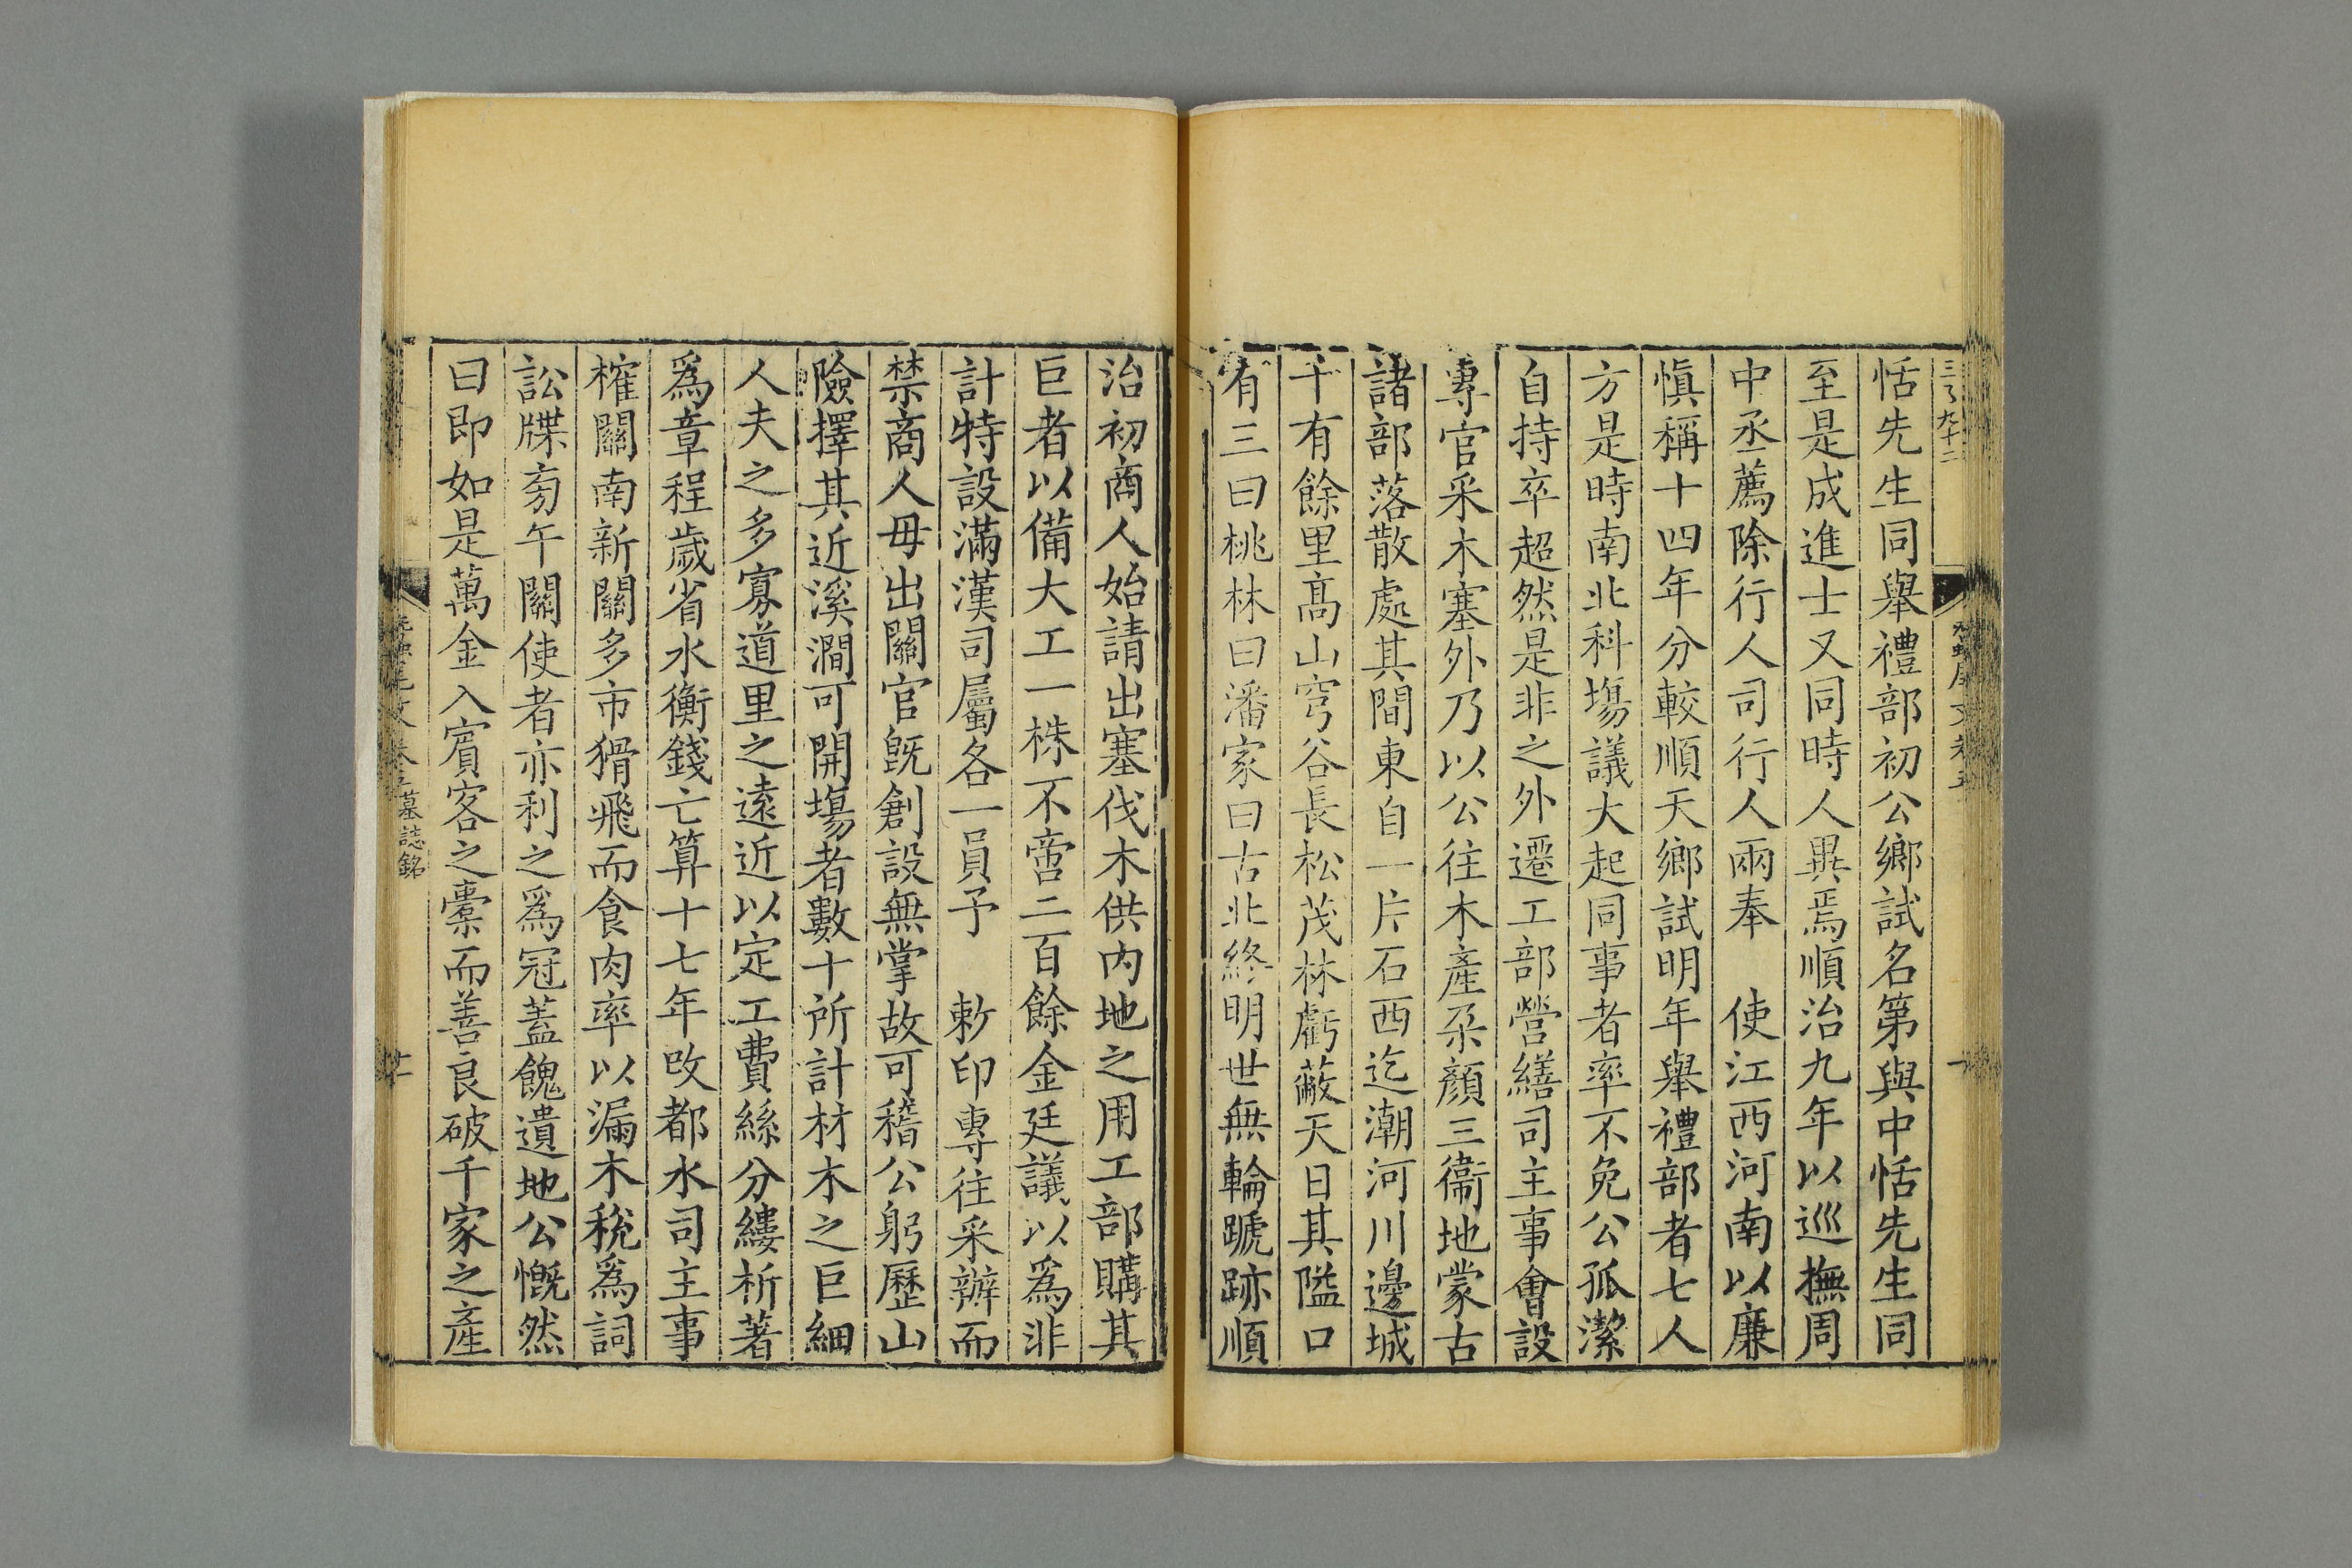 恬先生同舉禮部初公鄉試名第與中恬先生同
至是成進士又同時人異焉順治九年以巡撫周
中丞薦除行人司行人兩奉　使江西河南以廉
愼稱十四年分較順天鄉試明年舉禮部者七人
方是時南北科塲議大起同事者率不免公孤潔
自持卒超然是非之外遷工部營繕司主事會設
專官采木塞外乃以公往木產朶顏三衞地蒙古
諸部落散處其間東自一片石西迄潮河川邊城
千有餘里高山穹谷長松茂林虧蔽天日其隘口
有三曰桃林曰潘家曰古北終明世無輪蹏跡順
治初商人始請出塞伐木供內地之用工部購其
巨者以備大工一株不啻二百餘金廷議以爲非
計特設滿漢司屬各一員予　敕印專往采辦而
禁商人毋出關官旣創設無掌故可稽公躬歷山
險擇其近溪澗可開塲者數十所計材木之巨細
人夫之多寡道里之遠近以定工費絲分縷析著
爲章程歲省水衡錢亡算十七年改都水司主事
榷關南新關多市猾飛而食肉率以漏木稅爲詞
訟牒旁午關使者亦利之爲冠蓋餽遺地公慨然
曰卽如是萬金入賓客之橐而善良破千家之產
墓誌銘